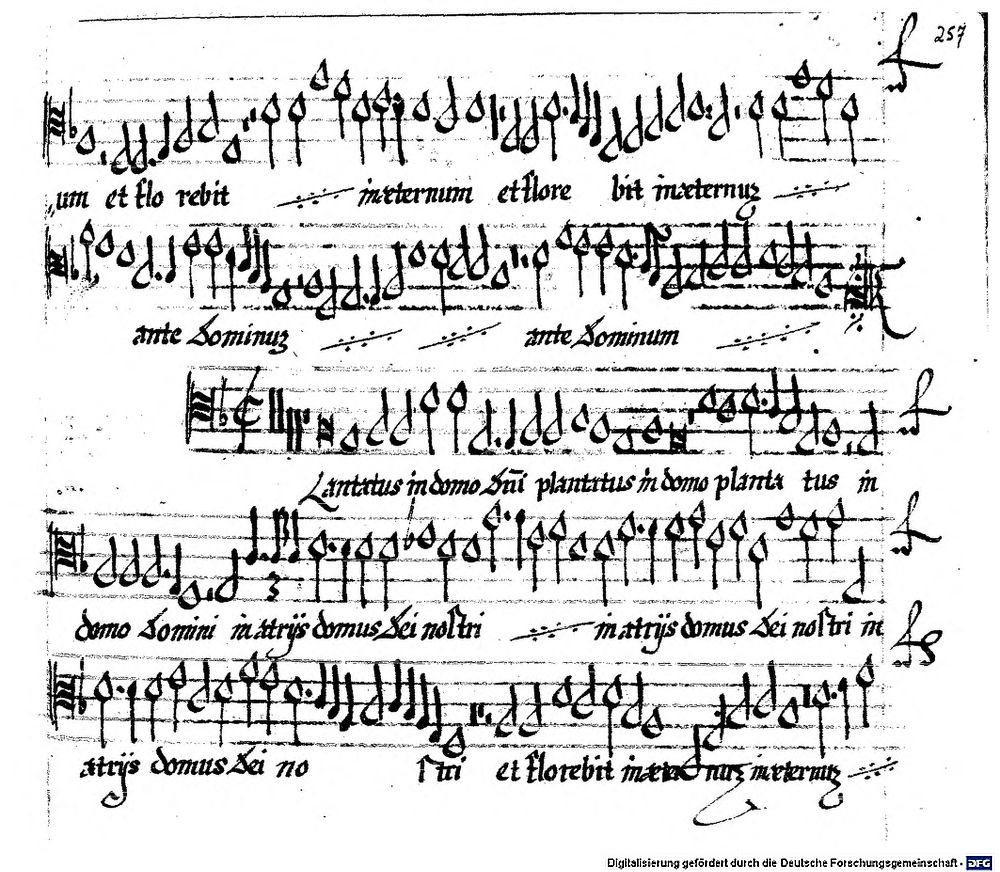 257
um et flo rebit inæternum et flore bit inæternuȝ
ante Dominuȝ ante Dominum
Lantatus in domo Dñi plantatus in domo planta tus in
domo Domini in atrijs domus Dei nostri in atrijs domus Dei nostri in
atrijs domus Dei no stri et florebit inæter nuȝ inæternuȝ
Digitalisierung gefördert durch die Deutsche Forschungsgemeinschaft - DFG